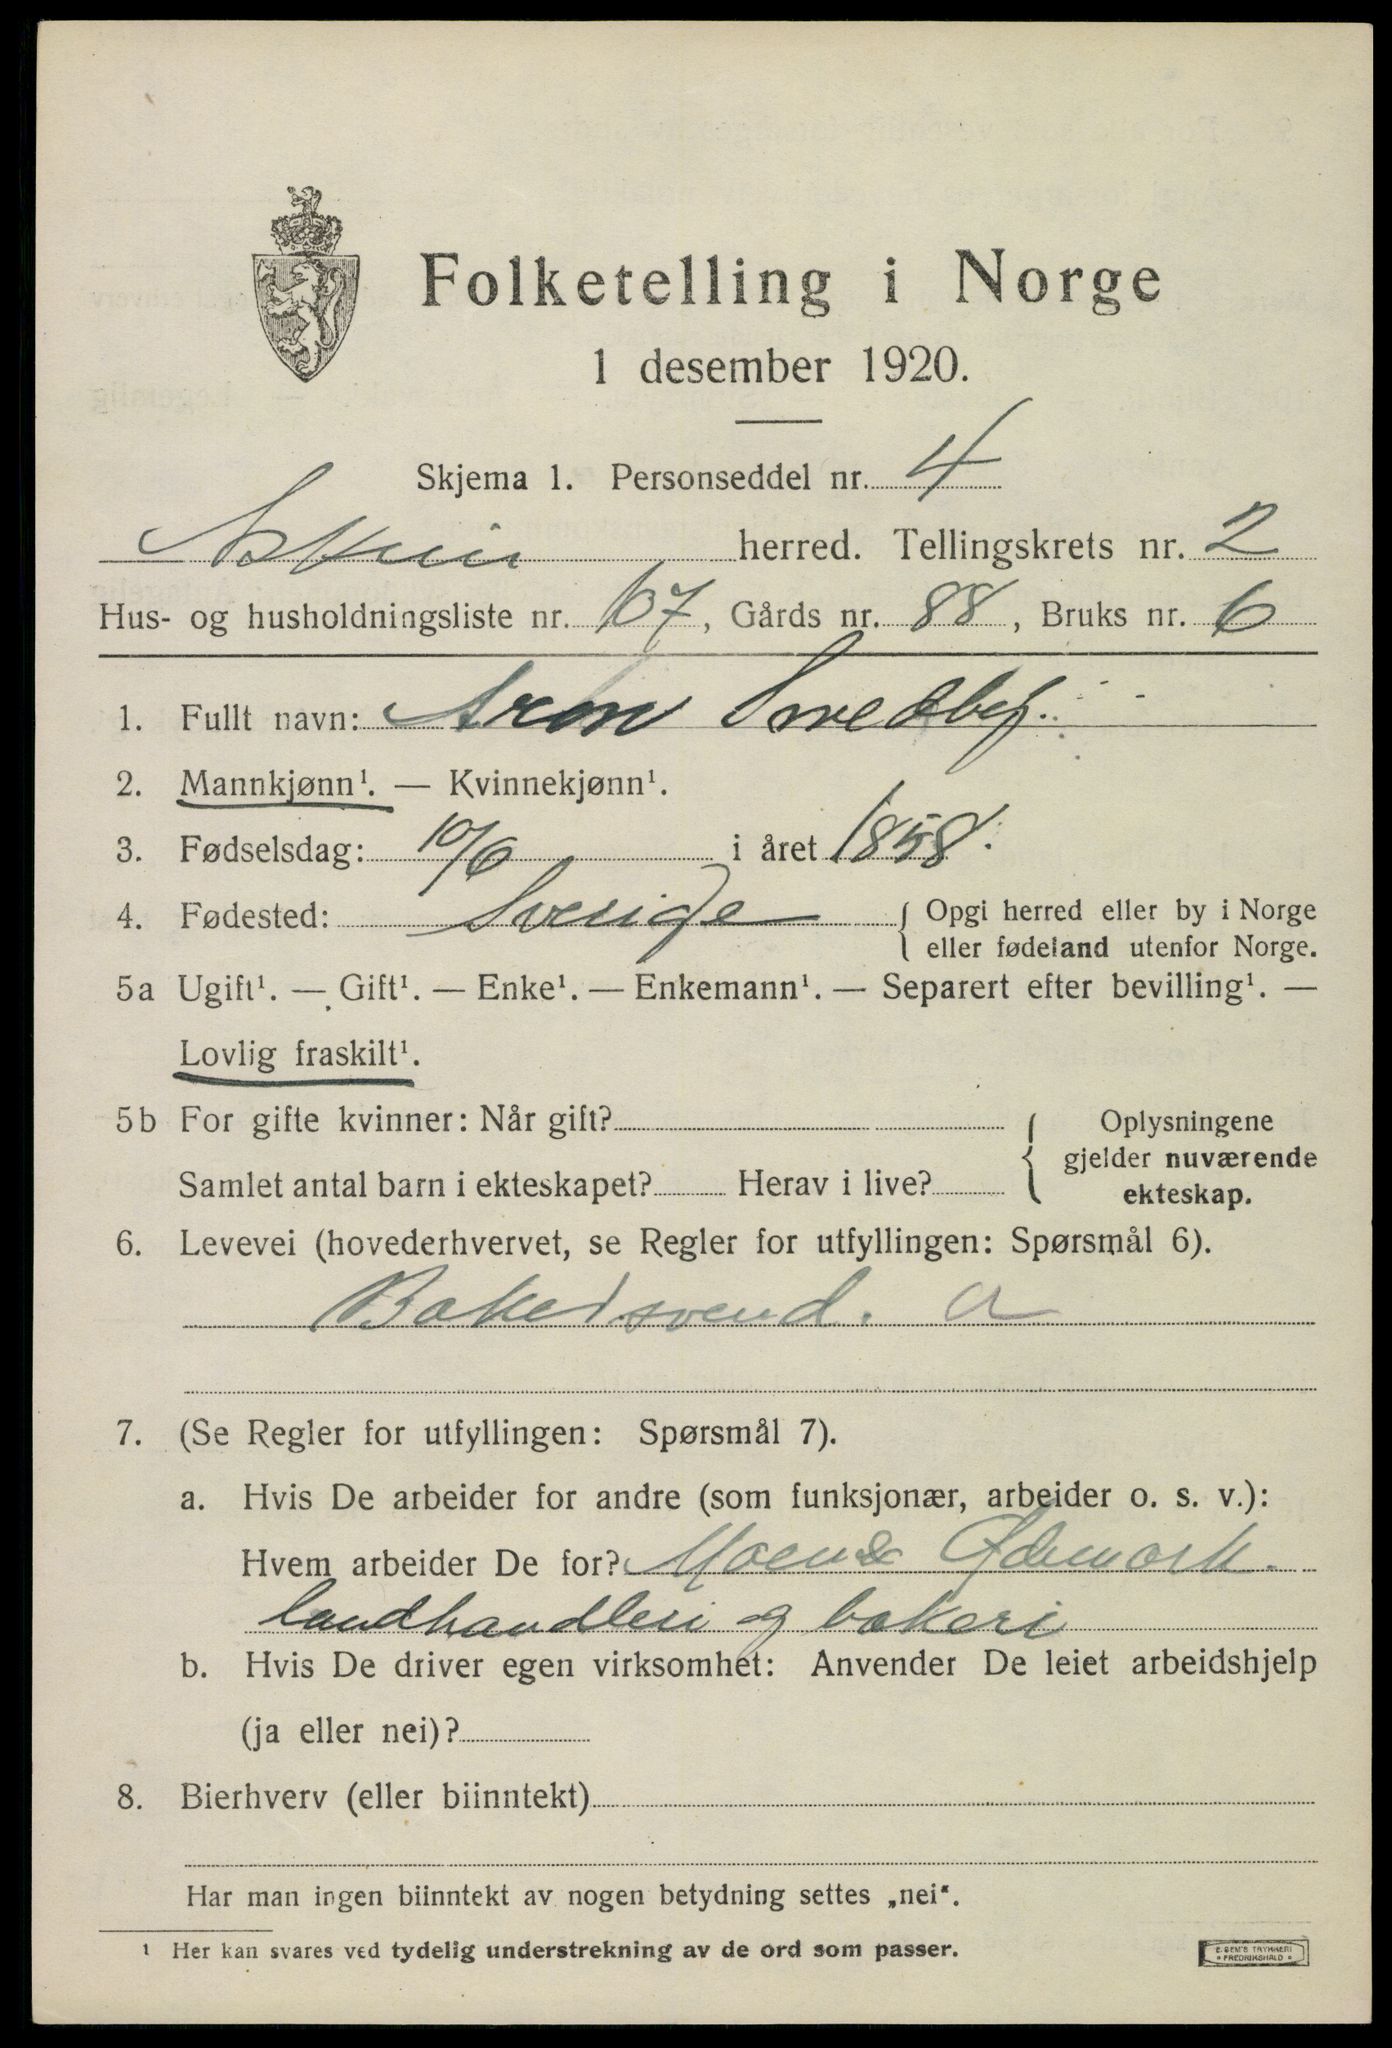 Folketelling i Norge
1 desember 1920.
Skjema 1. Personseddel nr. 4
Askim herred. Tellingskrets nr. 2
Hus- og husholdningsliste nr. 107, Gårds nr. 88, Bruks nr. 6
1. Fullt navn: Aron Svedberg.
2. Mannkjønn¹. — Kvinnekjønn¹.
3. Fødselsdag: 10/6 i året 1858.
4. Fødested: Sverige { Opgi herred eller by i Norge
eller fødeland utenfor Norge.
5a Ugift¹. — Gift¹. — Enke¹. — Enkemann¹. — Separert efter bevilling¹. —
Lovlig fraskilt¹.
5b For gifte kvinner: Når gift? { Oplysningene
gjelder nuværende
Samlet antal barn i ekteskapet? Herav i live? ekteskap.
6. Levevei (hovederhvervet, se Regler for utfyllingen: Spørsmål 6).
Bakersvend. a
7. (Se Regler for utfyllingen: Spørsmål 7).
a. Hvis De arbeider for andre (som funksjonær, arbeider o. s. v.):
Hvem arbeider De for? Moen & Ødemark.
landhandleri og bakeri
b. Hvis De driver egen virksomhet: Anvender De leiet arbeidshjelp
(ja eller nei)?
8. Bierhverv (eller biinntekt)
Har man ingen biinntekt av nogen betydning settes „nei“.
¹ Her kan svares ved tydelig understrekning av de ord som passer.
E. SEM'S TRYKKERI
* FREDRIKSHALD *